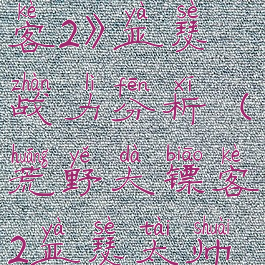 kè yà sè
客2》亚瑟
zhàn lì fēn xī
战力分析（
huāng yě dà biāo kè
荒野大镖客
yà sè tài shuài
2亚瑟太帅